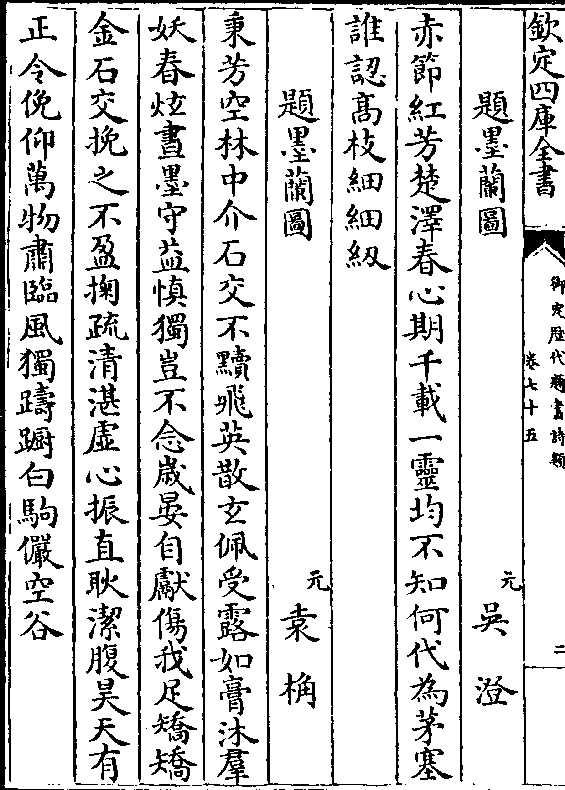 欽定四庫全書
御定歴代題畫詩類
卷七十五
二
題墨蘭圖
元 吳澄
赤節紅芳楚澤春心期千載一靈均不知何代為茅塞
誰認髙枝細細紉
題墨蘭圖
元 袁桷
秉芳空林中介石交不黷飛英散玄佩受露如膏沐羣
妖春炫晝墨守益慎獨豈不念嵗晏自獻傷我足矯矯
金石交挽之不盈掬疏清湛虛心振直耿潔腹昊天有
正令俛仰萬物肅臨風獨躊蹰白駒儼空谷